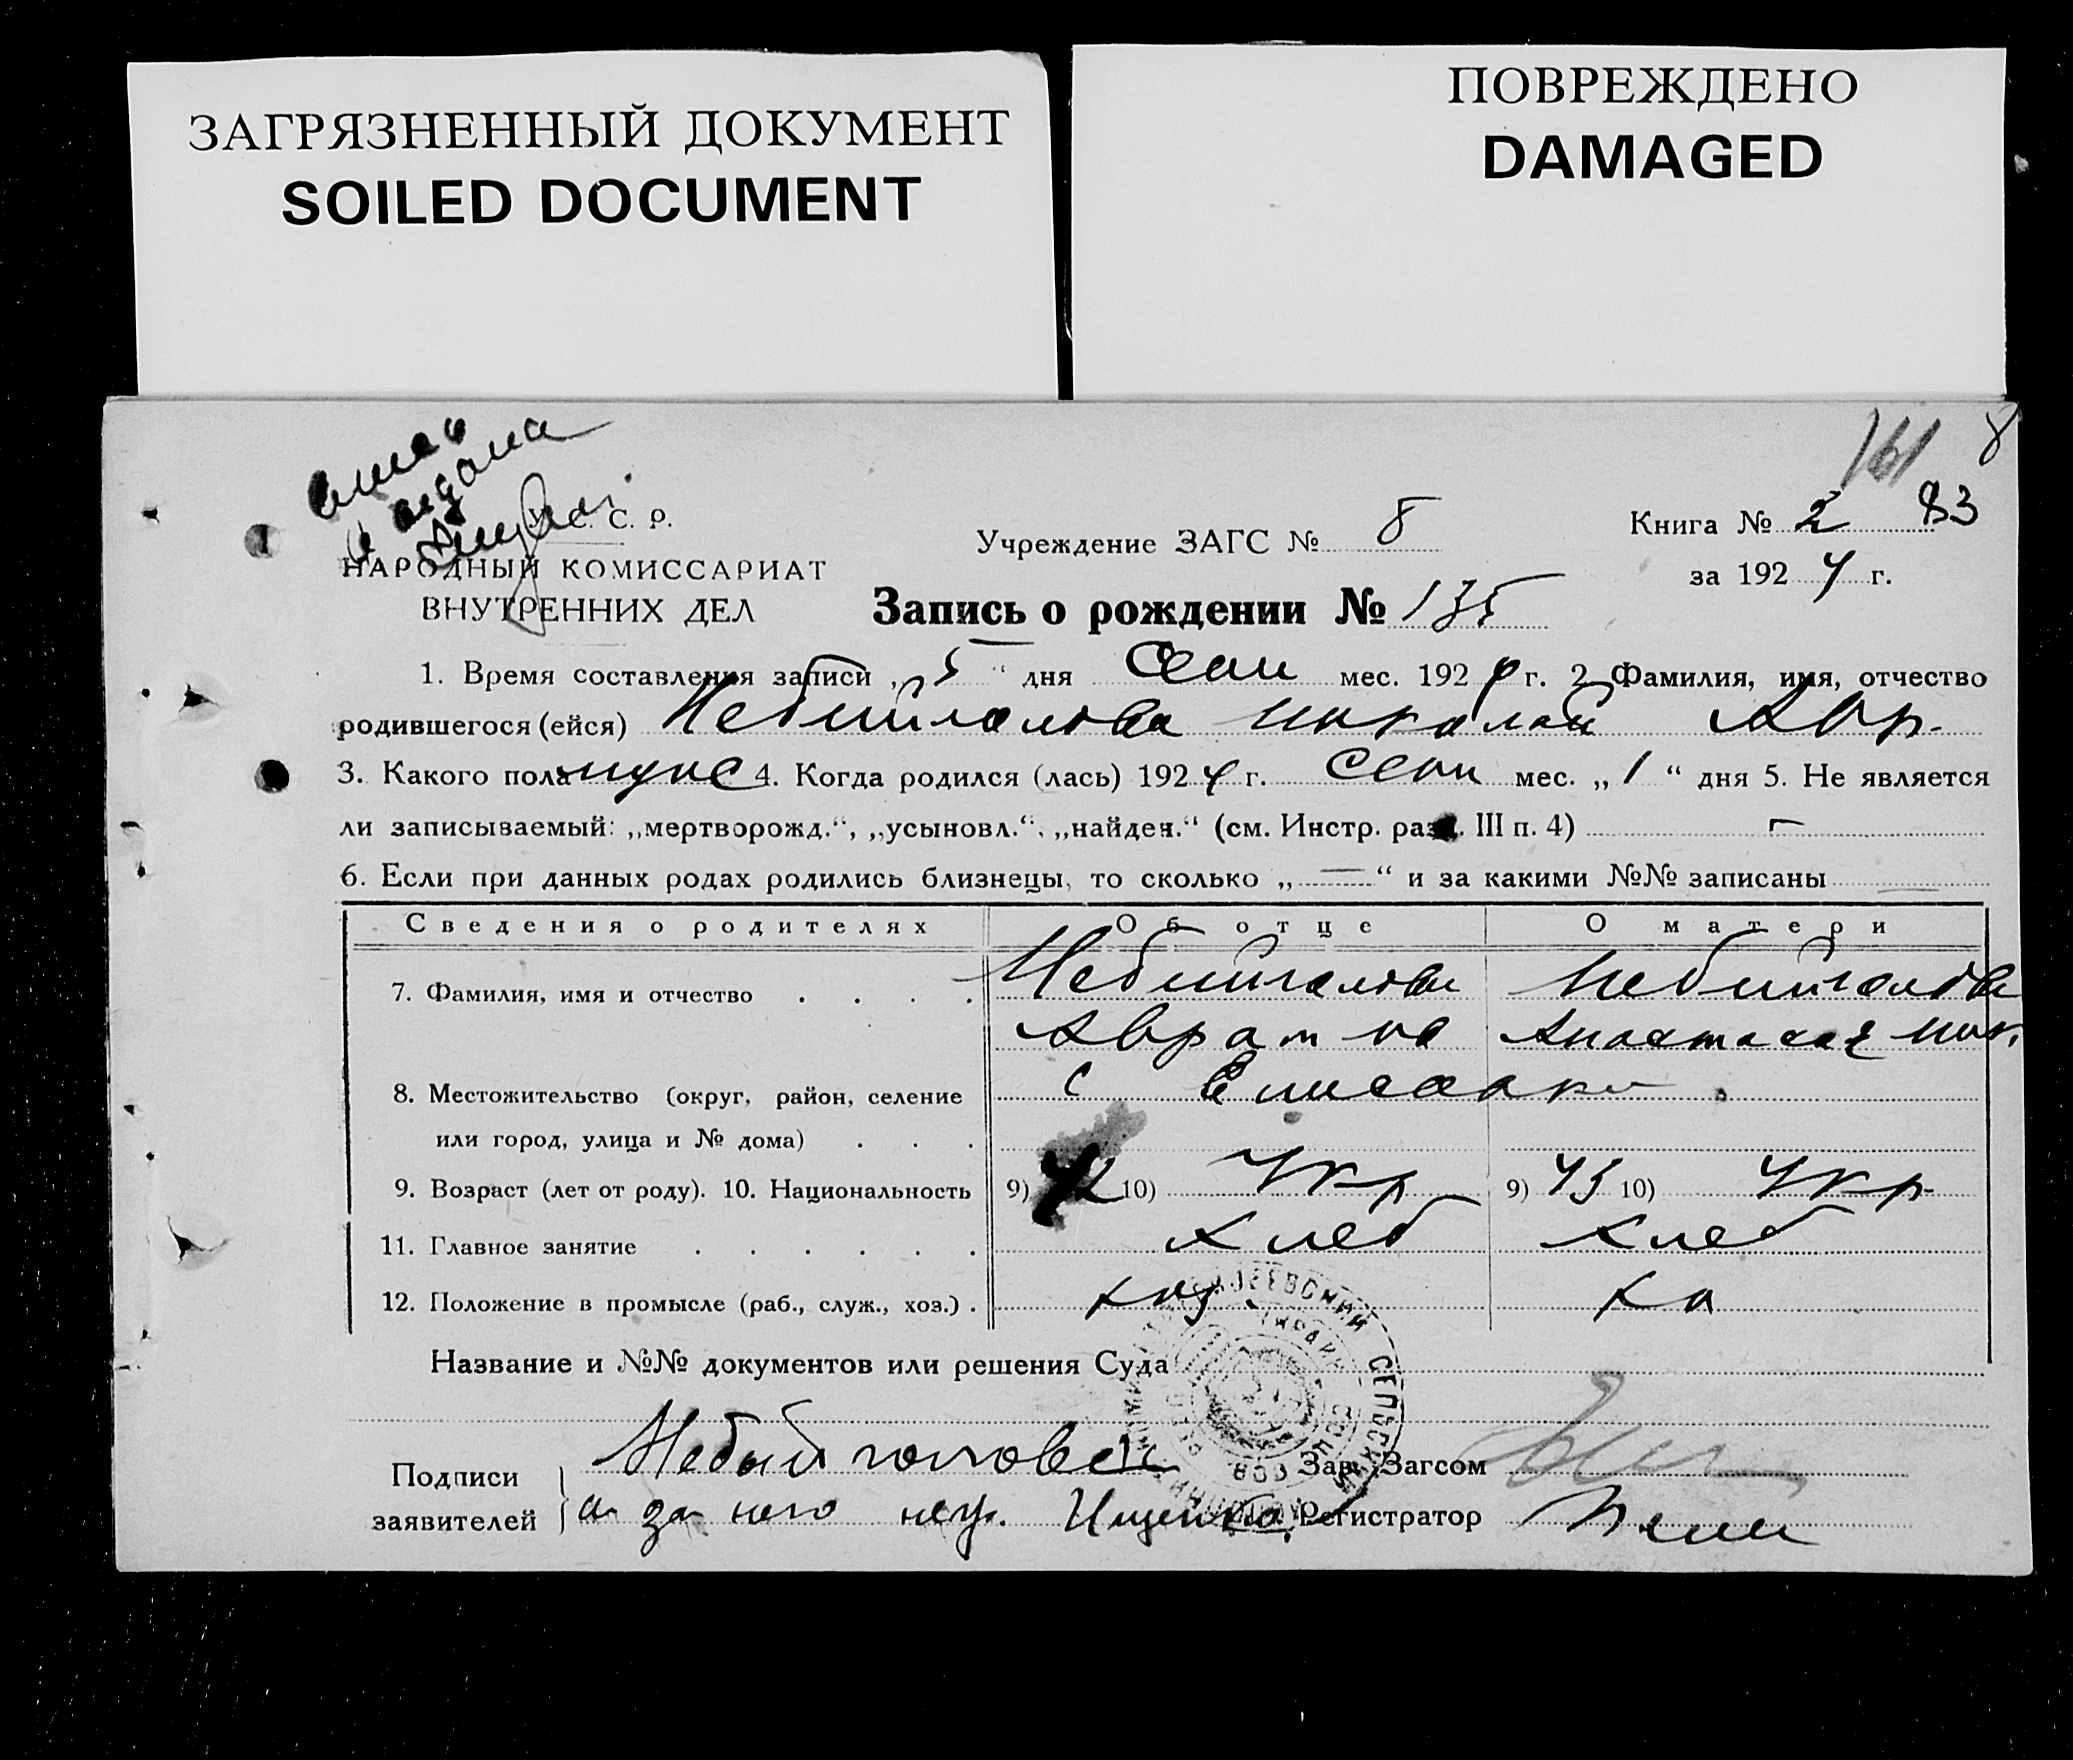 ЗАГРЯЗНЕННЫЙ ДОКУМЕНТ
SOILED DOCUMENT
ПОВРЕЖДЕНО
DAMAGED
161 8
У. С. С. Р.
НАРОДНЫЙ КОМИССАРИАТ
ВНУТРЕННИХ ДЕЛ
Учреждение ЗАГС № 8
Книга № 2 83
за 1924 г.
Запись о рождении № 135
1. Время составления записи „5“ дня Сент мес. 1924 г. 2 Фамилия, имя, отчество
родившегося (ейся) Небийголова Николай Авр.
3. Какого пола муж 4. Когда родился (лась) 1924 г. Сент мес. „1“ дня 5. Не является
ли записываемый: „мертворожд.“, „усыновл.“, „найден.“ (см. Инстр. разд. III п. 4) –
6. Если при данных родах родились близнецы, то сколько „—“ и за какими №№ записаны —
Сведения о родителях Об отце О матери
7. Фамилия, имя и отчество . . . . Небийголова Небийголова
Аврам Анастасия Ник.
8. Местожительство (округ, район, селение с
или город, улица и № дома) . . .
9. Возраст (лет от роду). 10. Национальность 9) 42 10) Укр 9) 43 10) Укр
11. Главное занятие . . . . . . Хлеб Хлеб
12. Положение в промысле (раб., служ., хоз.) . хоз
Название и №№ документов или решения Суда
Подписи Небийголова Зав. Загсом
заявителей а за него неგр. Ищенко Регистратор